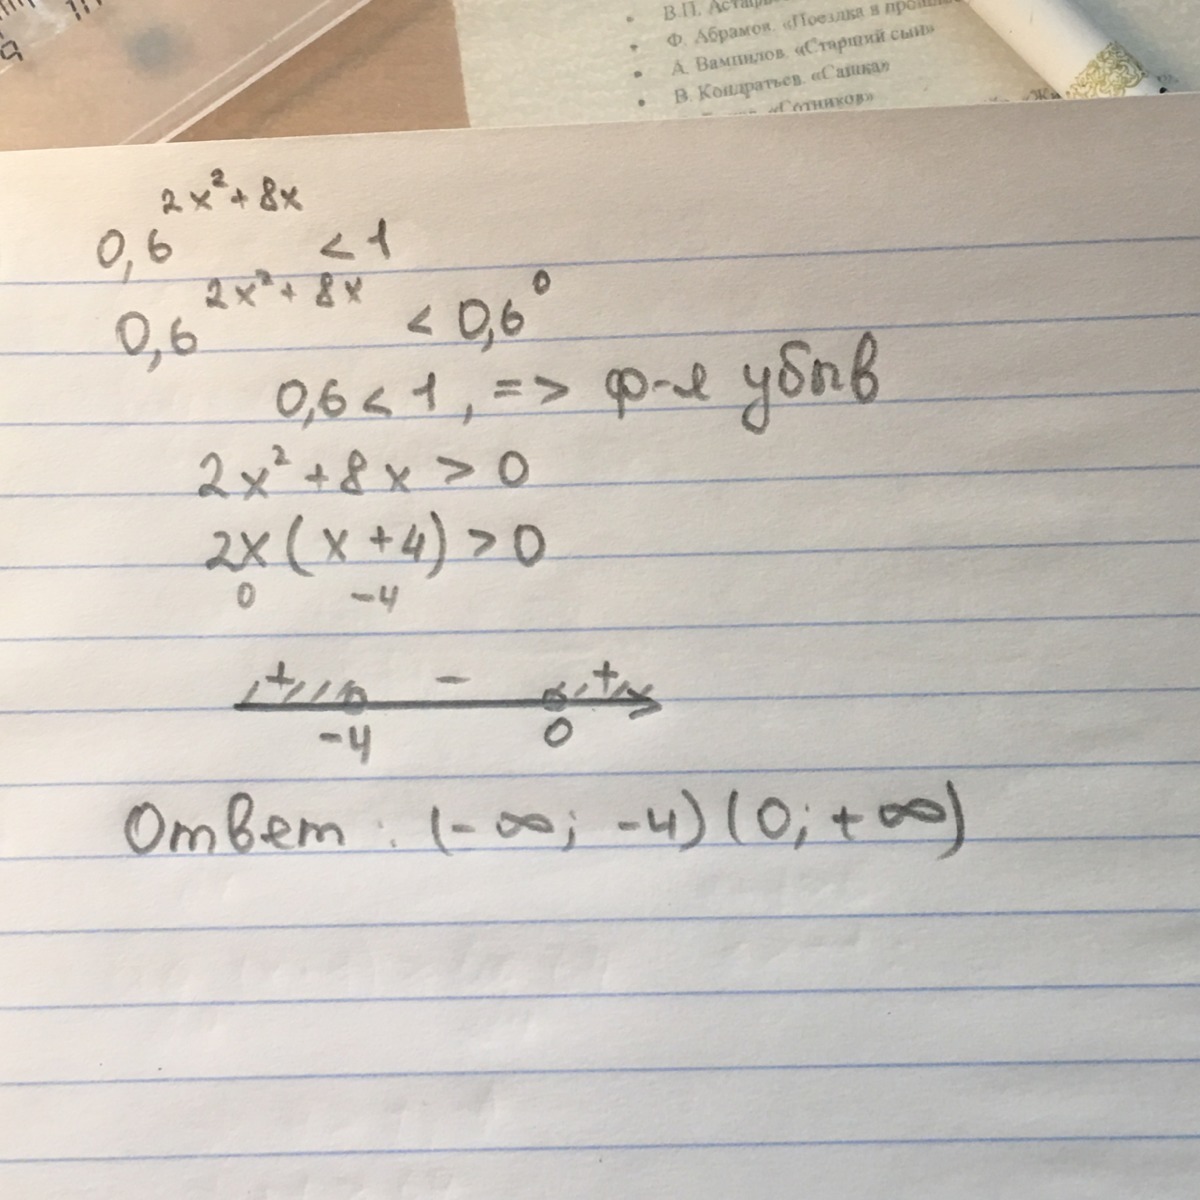 В.П. 
Ф. Абрамов. «Поездка в
А. Вампилов. «Старший сын»
В. Кондратьев. «Сашка»
«Сотников»
0,6^(2x²+8x) < 1
0,6^(2x²+8x) < 0,6^0
0,6 < 1, => ф-я убыв
2x² + 8x > 0
2x(x+4) > 0
0 -4
+ - +
-4 0
Ответ: (-∞; -4)(0; +∞)